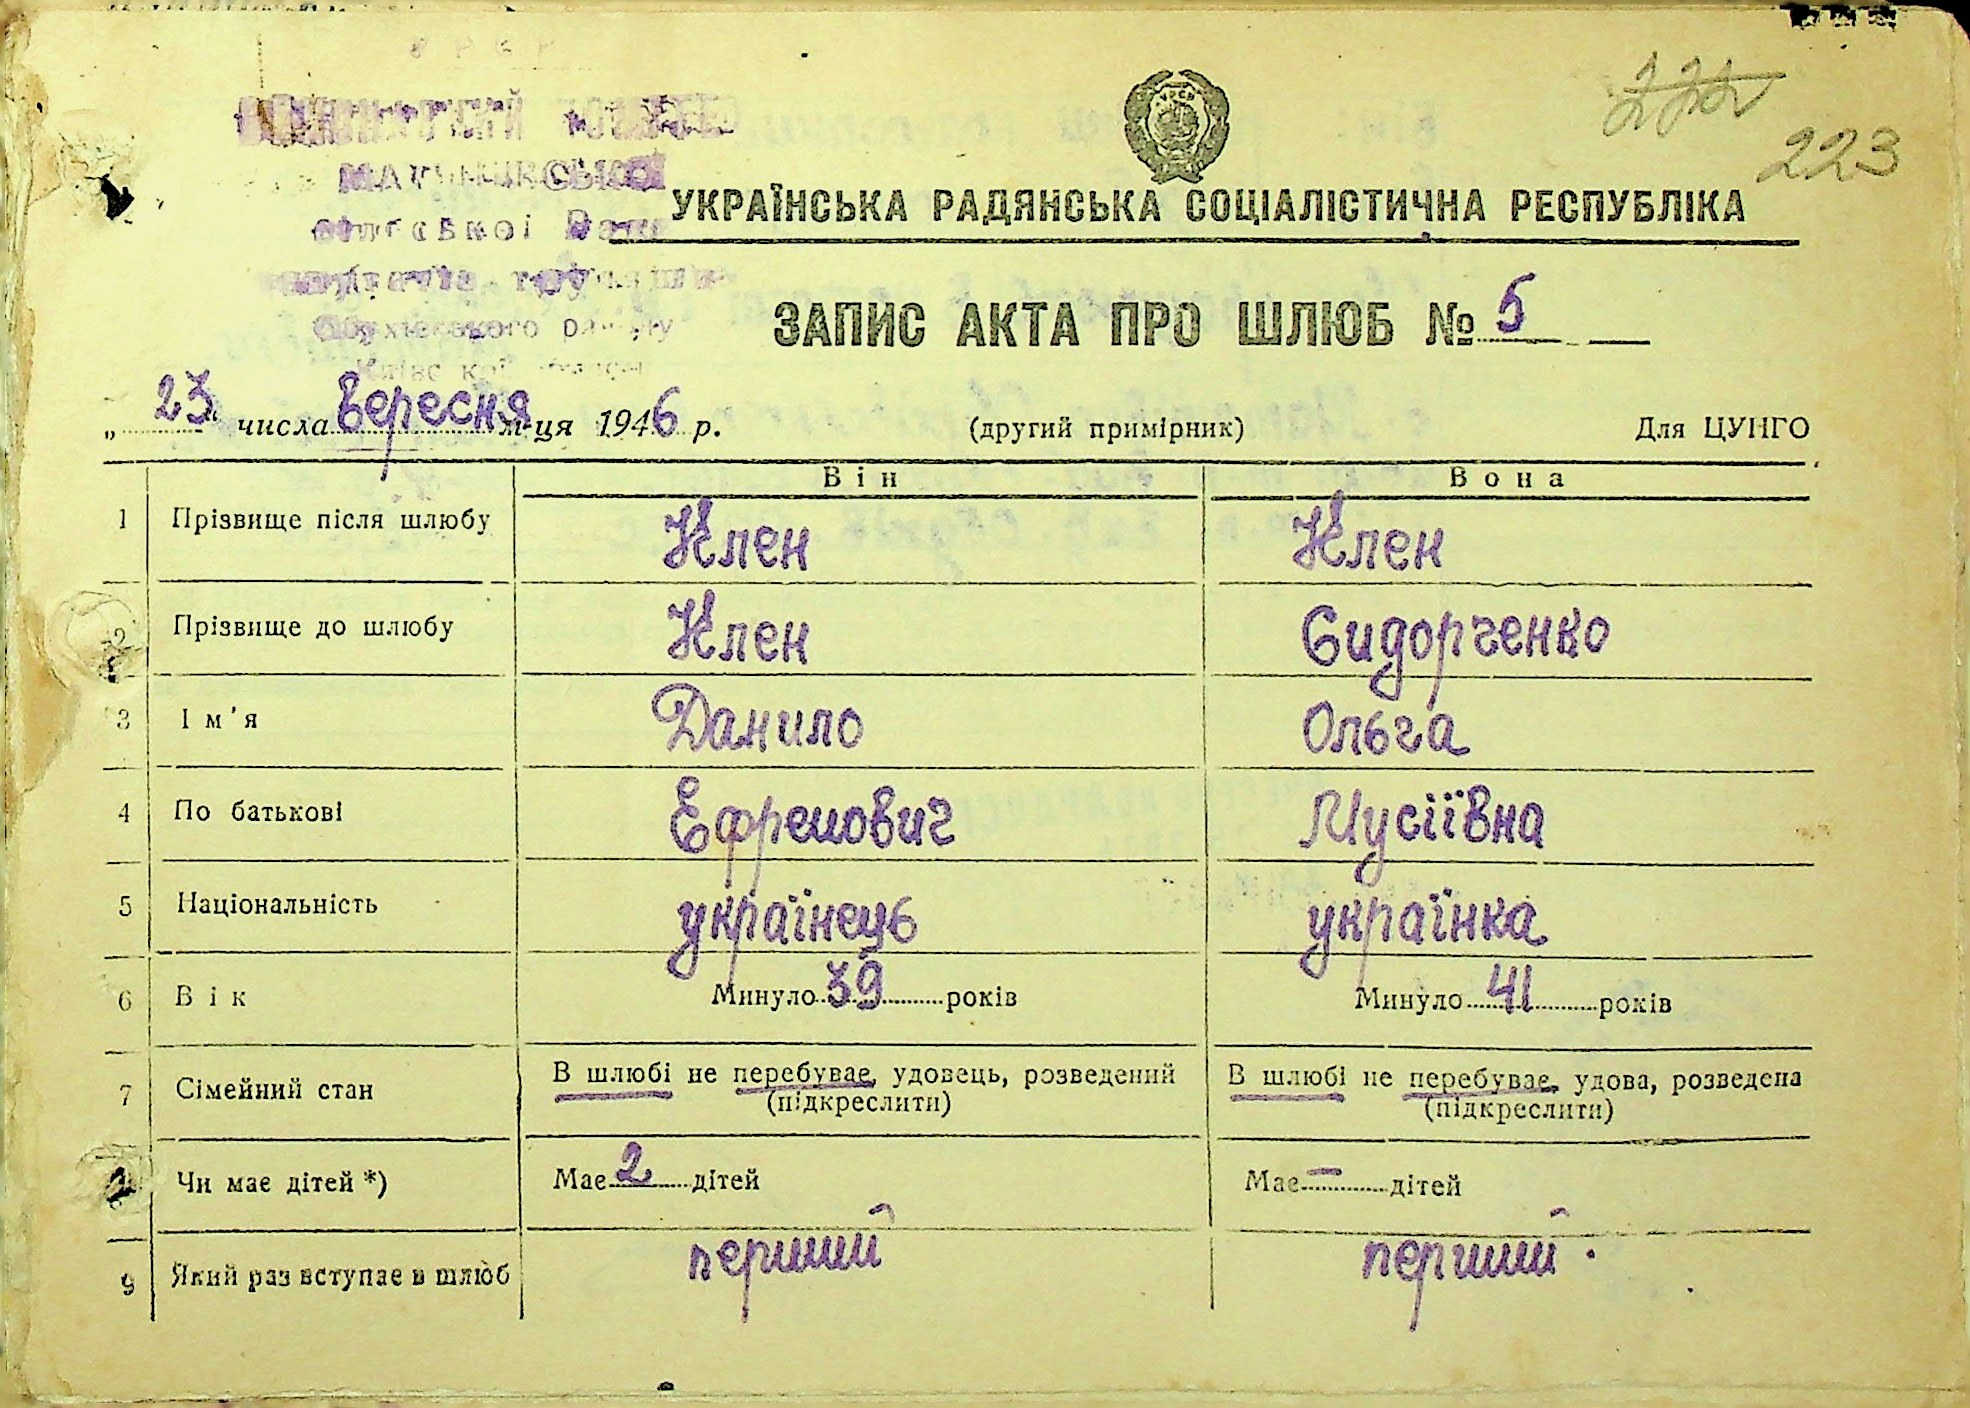 УРСР
223
УКРАЇНСЬКА РАДЯНСЬКА СОЦІАЛІСТИЧНА РЕСПУБЛІКА
ЗАПИС АКТА ПРО ШЛЮБ № 5
„23“ числа вересня м-ця 1946 р. (другий примірник) Для ЦУНГО
Він Вона
1 Прізвище після шлюбу Клен Клен
2 Прізвище до шлюбу Клен Сидорченко
3 Ім'я Данило Ольга
4 По батькові Ефремович Мусіївна
5 Національність українець українка
6 Вік Минуло 39 років Минуло 41 років
7 Сімейний стан В шлюбі не перебуває, удовець, розведений (підкреслити) В шлюбі не перебуває, удова, розведена (підкреслити)
Чи має дітей *) Має 2 дітей Має — дітей
9 Який раз вступає в шлюб перший перший.